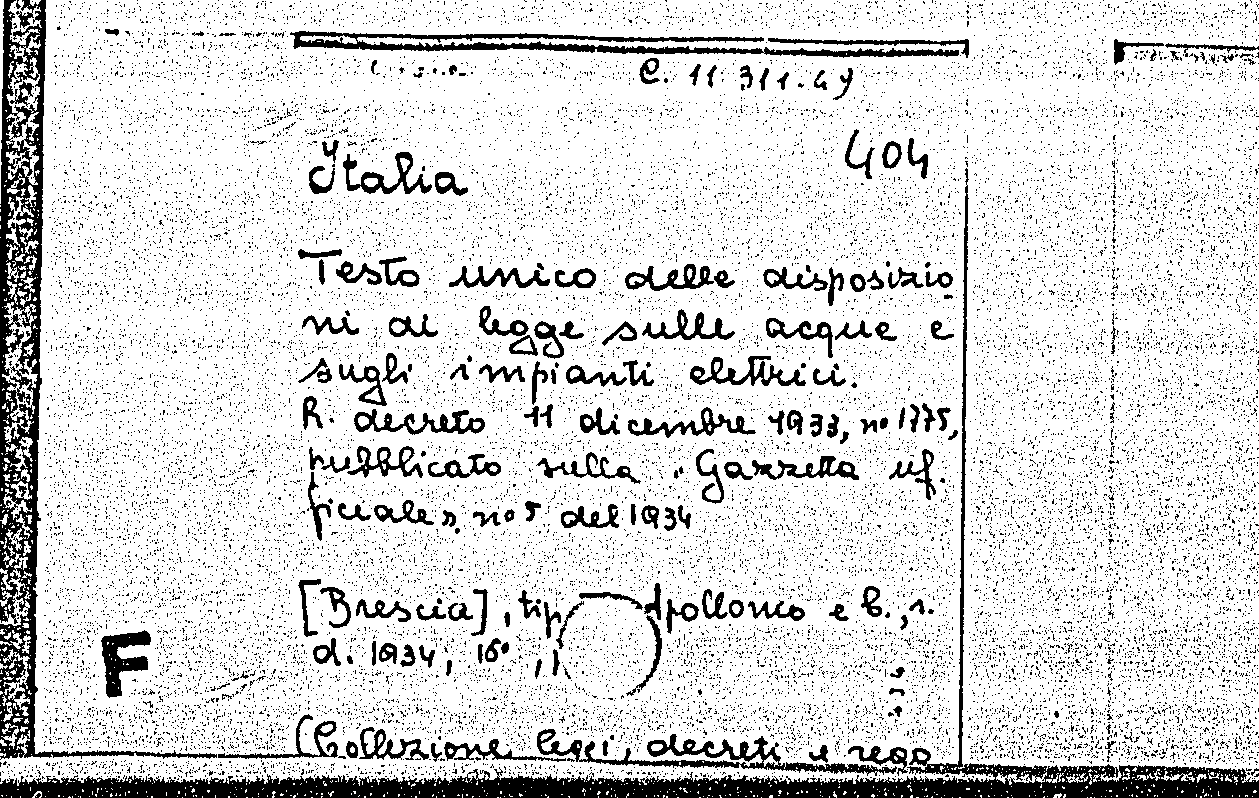 C. 11.311.49
404
Italia
Testo unico delle disposizio
ni di legge sulle acque e
sugli impianti elettrici.
R. decreto 11 dicembre 1933, nº 1775,
pubblicato sulla "Gazzetta uf.
ficiale", nº 5 del 1934
[Brescia], tip pollonio e C., s.
d. 1934, 16º,
F
(Collezione leggi, decreti e rego